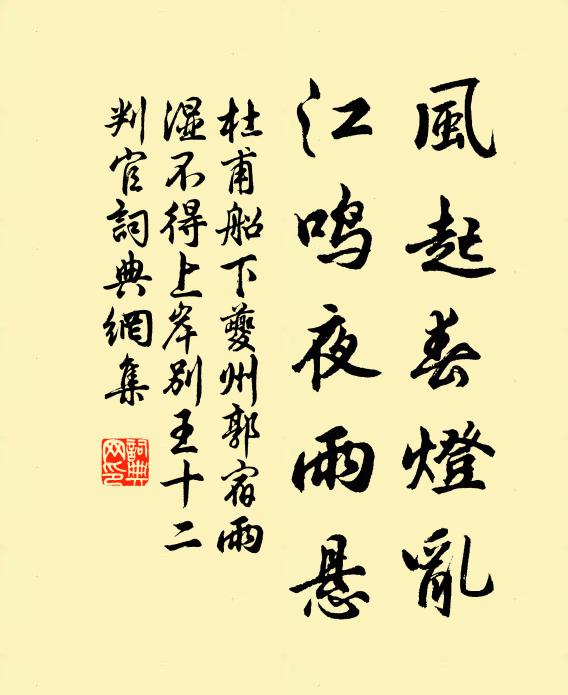 風起春燈亂
江鸣夜雨悬
杜甫船下夔州郭宿雨
湿不得上岸别王十二
判官詞典網集
詞典
网印